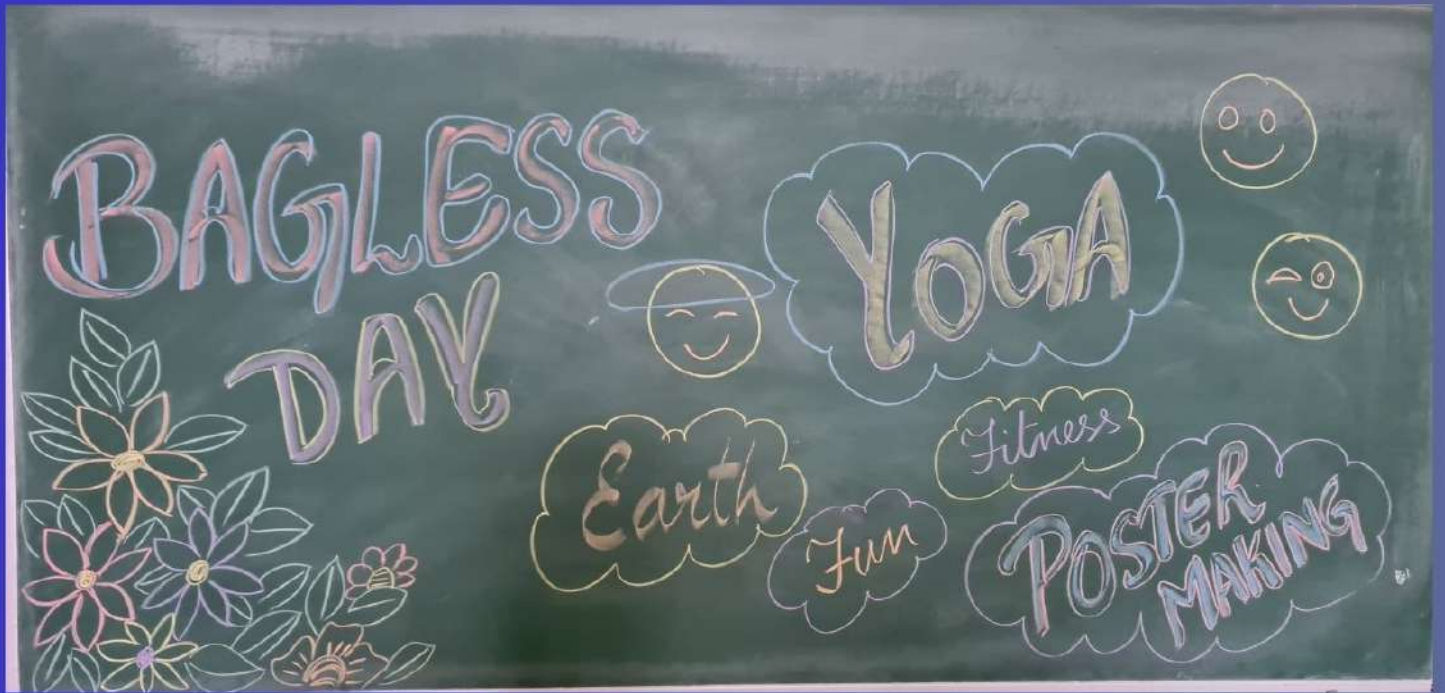 BAGLESS
DAY
YOGA
Earth
Fitness
Fun
POSTER
MAKING